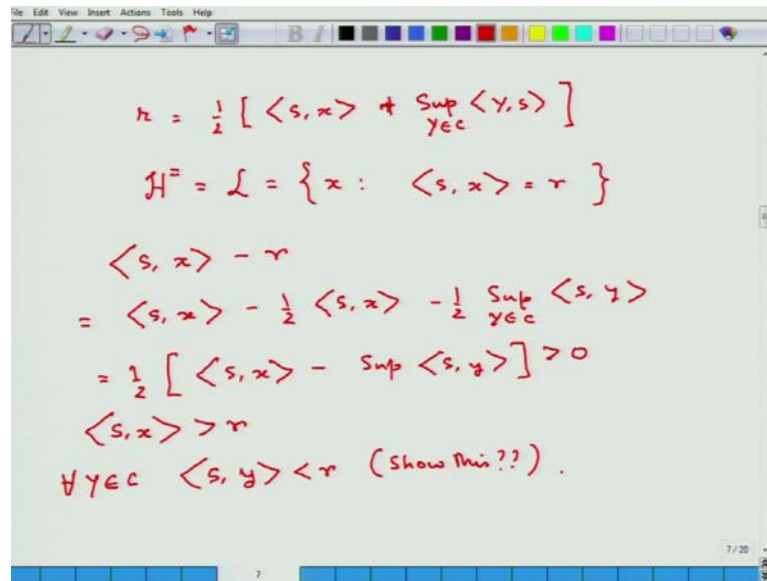 File Edit View Insert Actions Tools Help
B I
r = 1/2 [ <s, x> + Sup_{y∈C} <y, s> ]
H^= = L = { x : <s, x> = r }
<s, x> - r
= <s, x> - 1/2 <s, x> - 1/2 Sup_{y∈C} <s, y>
= 1/2 [ <s, x> - Sup <s, y> ] > 0
<s, x> > r
∀ y∈C <s, y> < r (Show this??).
7/20
7